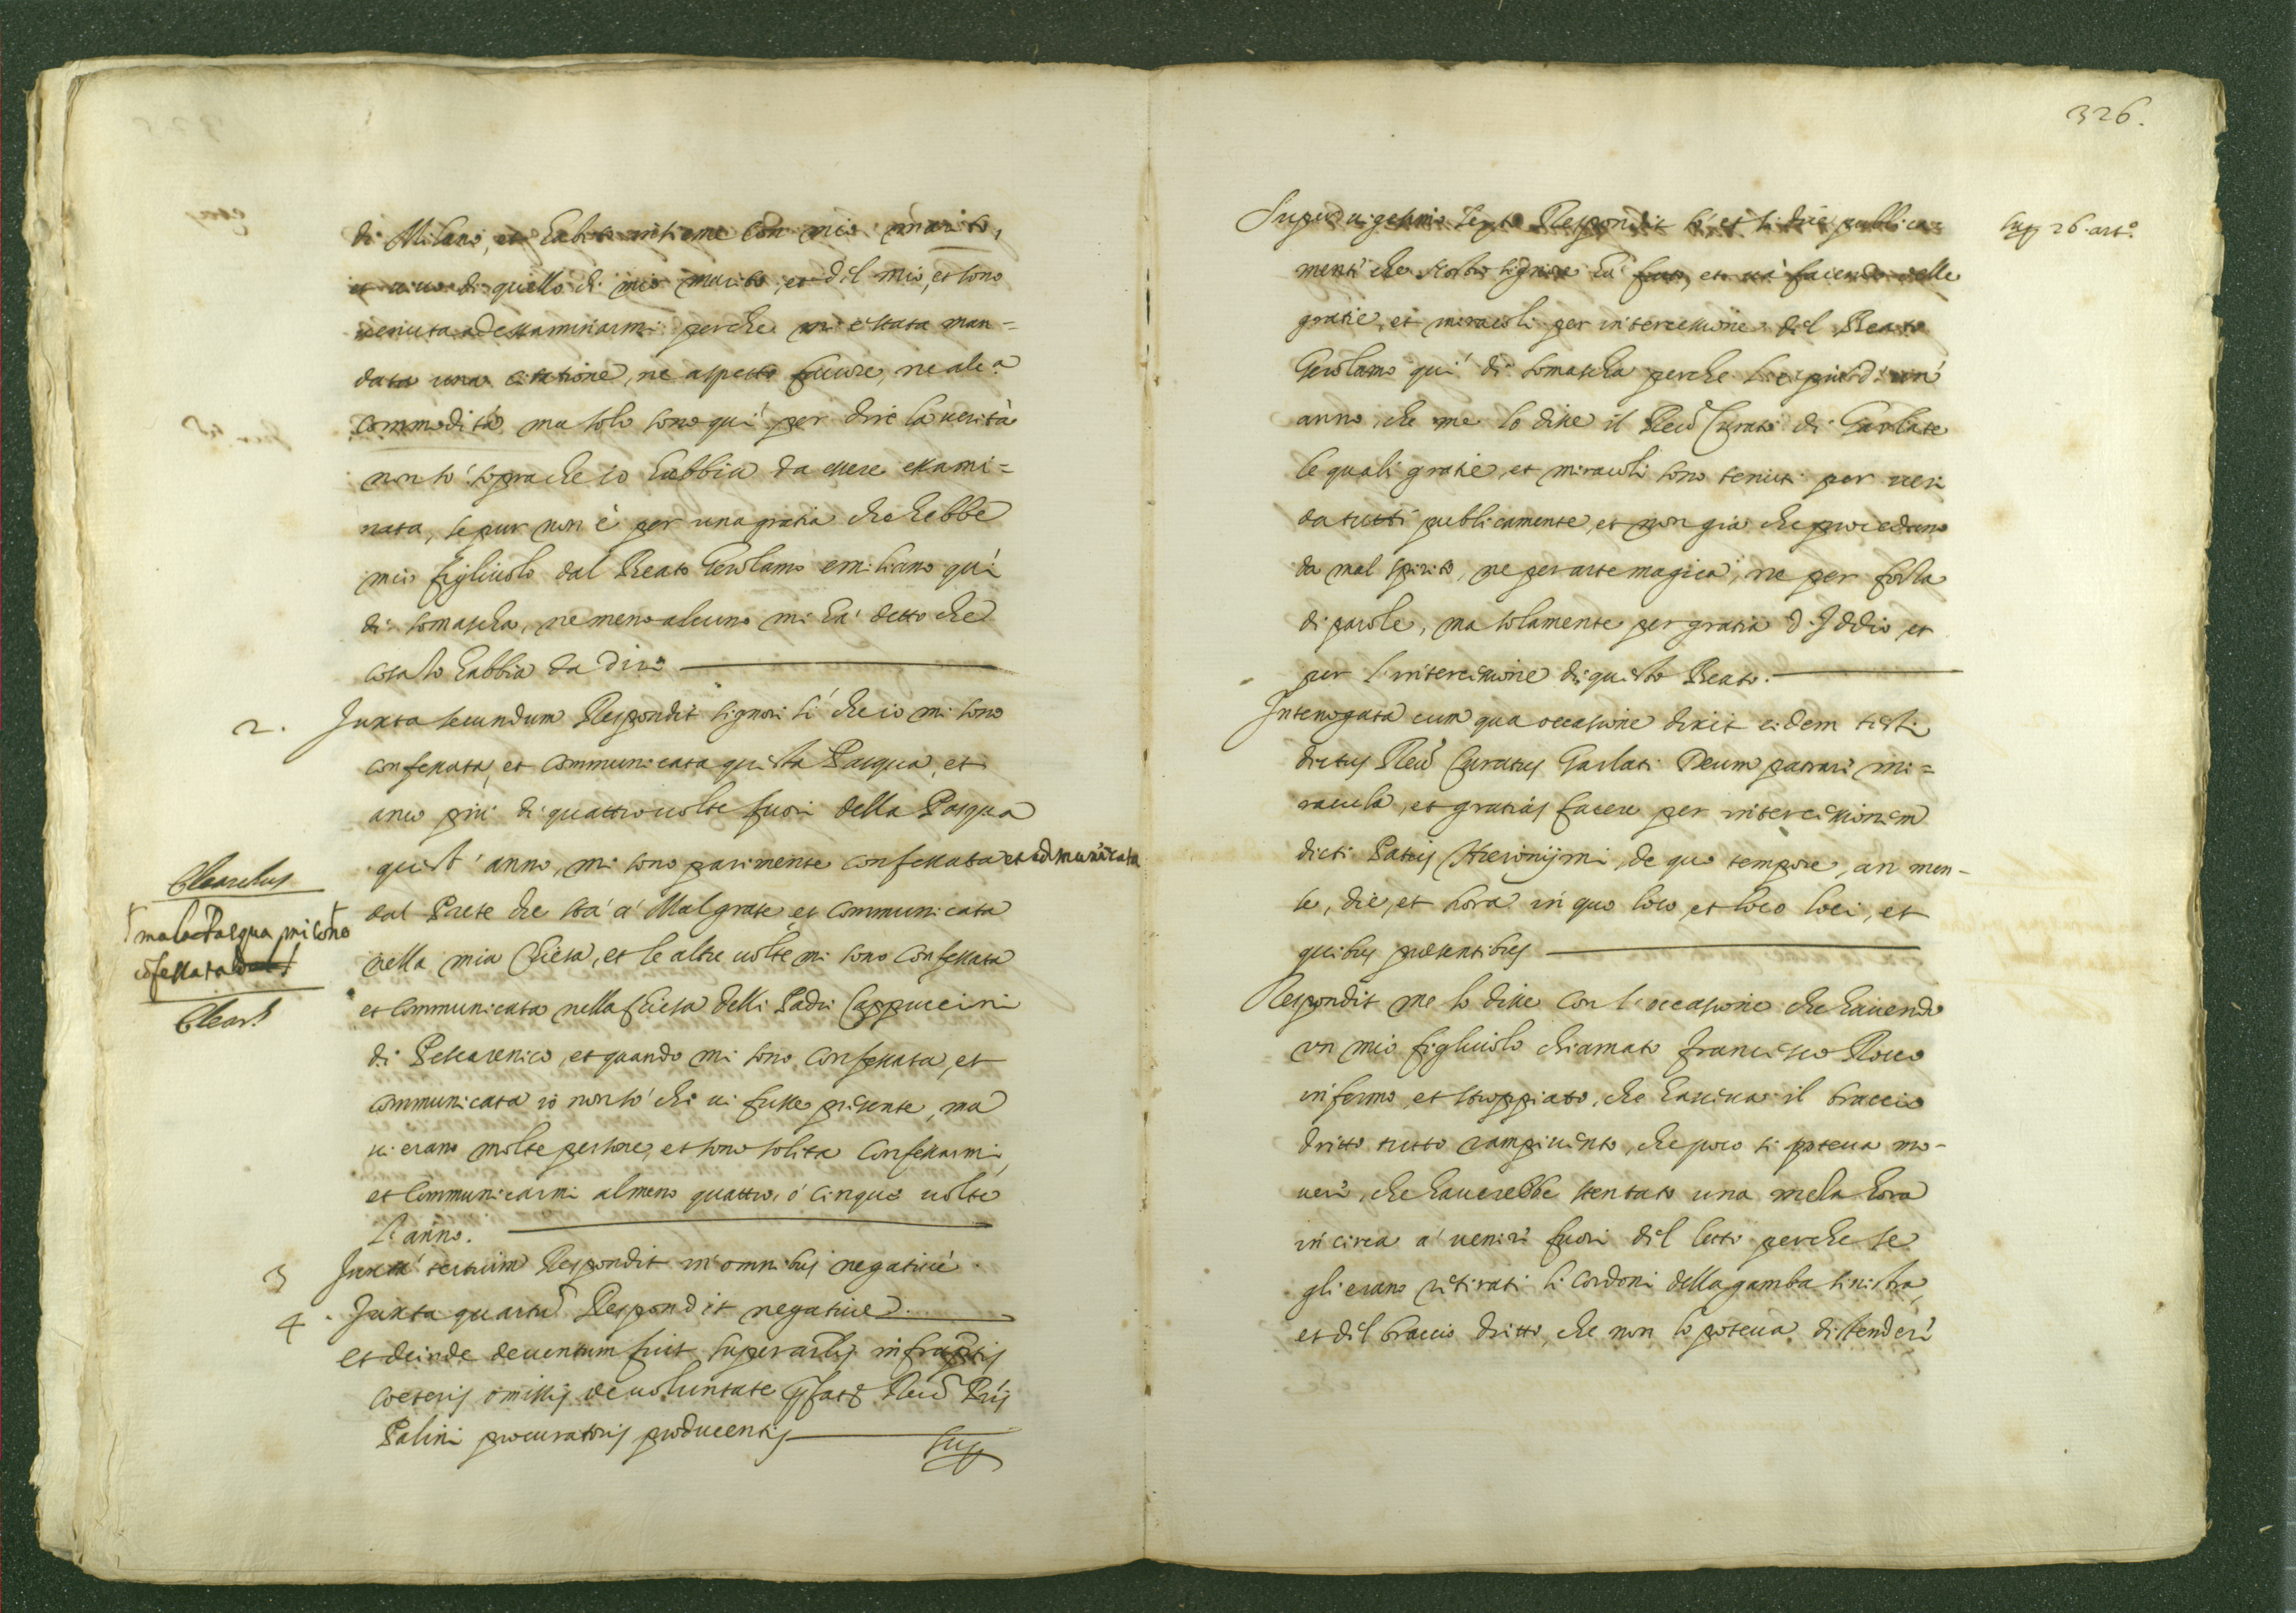 di Milano, et habito insieme con mio marito,
et vivo di quello di mio marito, et del mio, et sono
venuta ad essaminarmi perche mi è stata man=
data una citatione, ne aspetto favore, ne alc.a
commodità, ma solo sono qui per dire la verità
non sò sopra che io habbia da essere essami=
nata, se pur non è per una gratia che hebbe
mio figliuolo dal Beato Gerolamo emiliano quì
di somascha, ne meno alcuno mi hà detto che
cosa io habbia da dire
2. Juxta secundum Respondit signori sì che io mi sono
confessata, et communicata questa Pasqua, et
anco più di quattro volte fuori della Pasqua
quest' anno, mi sono parimente confessata et cōmunicata
dal Prete che stà a' Malgrate et communicata
nella mia Chiesa, et le altre volte mi sono confessata
et communicata nella Chiesa delli Padri Cappuccini
di Pescarenico, et quando mi sono confessata, et
communicata io non sò chi vi fusse presente, mà
vi erano molte persone, et sono solita confessarmi,
et communicarmi almeno quattro, ò cinque volte
l'anno.
Clearchus
ma la Pasqua mi sono
cōfessata dal
Clear.s
3 Juxta tertium Respondit in omnibus negativè.
4. Juxta quartū Respondit negative.
Et deinde deventum fuit super artis infraptis
coeteris omissis de voluntate Rev.di Pris
Palini procuratoris producentis
Sup
326.
Super vigesimo sexto Respondit sò, et si dice publica=
mente che Nostro signore hà fatto, et và facendo delle
gratie, et miracoli per intercessione del Beato
Gerolamo quì di somascha perche sarà più d' un'
anno, che me lo disse il Revdo Curato di Garlate
le quali gratie, et miracoli sono tenuti per veri
da tutti publicamente, et non gia che procedano
da mal spirito, ne per arte magica, ne per forza
di parole, ma solamente per gratia d' Iddio, et
per l'intercessione di questo Beato.
Interrogata cum qua occasione dixit eidem testi
dictus Revdus Curatus Garlati Deum patrari mi=
racula, et gratias facere per intercessionem
dicti Patris Hieronijmi, de quo tempore, an men-
se, die, et hora in quo loco, et loco loci, et
quibus presentibus
Respondit me lo disse con l'occasione che havendo
un mio figliuolo chiamato Francesco Rocco
infermo, et stroppiato, che haveva il braccio
dritto tutto rampinento, che poco si poteva mo-
vere, che haverebbe stentato una mezza hora
in circa a' venire fuori del letto perche se
gli erano retirati li cordoni della gamba sinistra,
et del braccio dritto, che non lo poteva distendere
sup 26. art.o